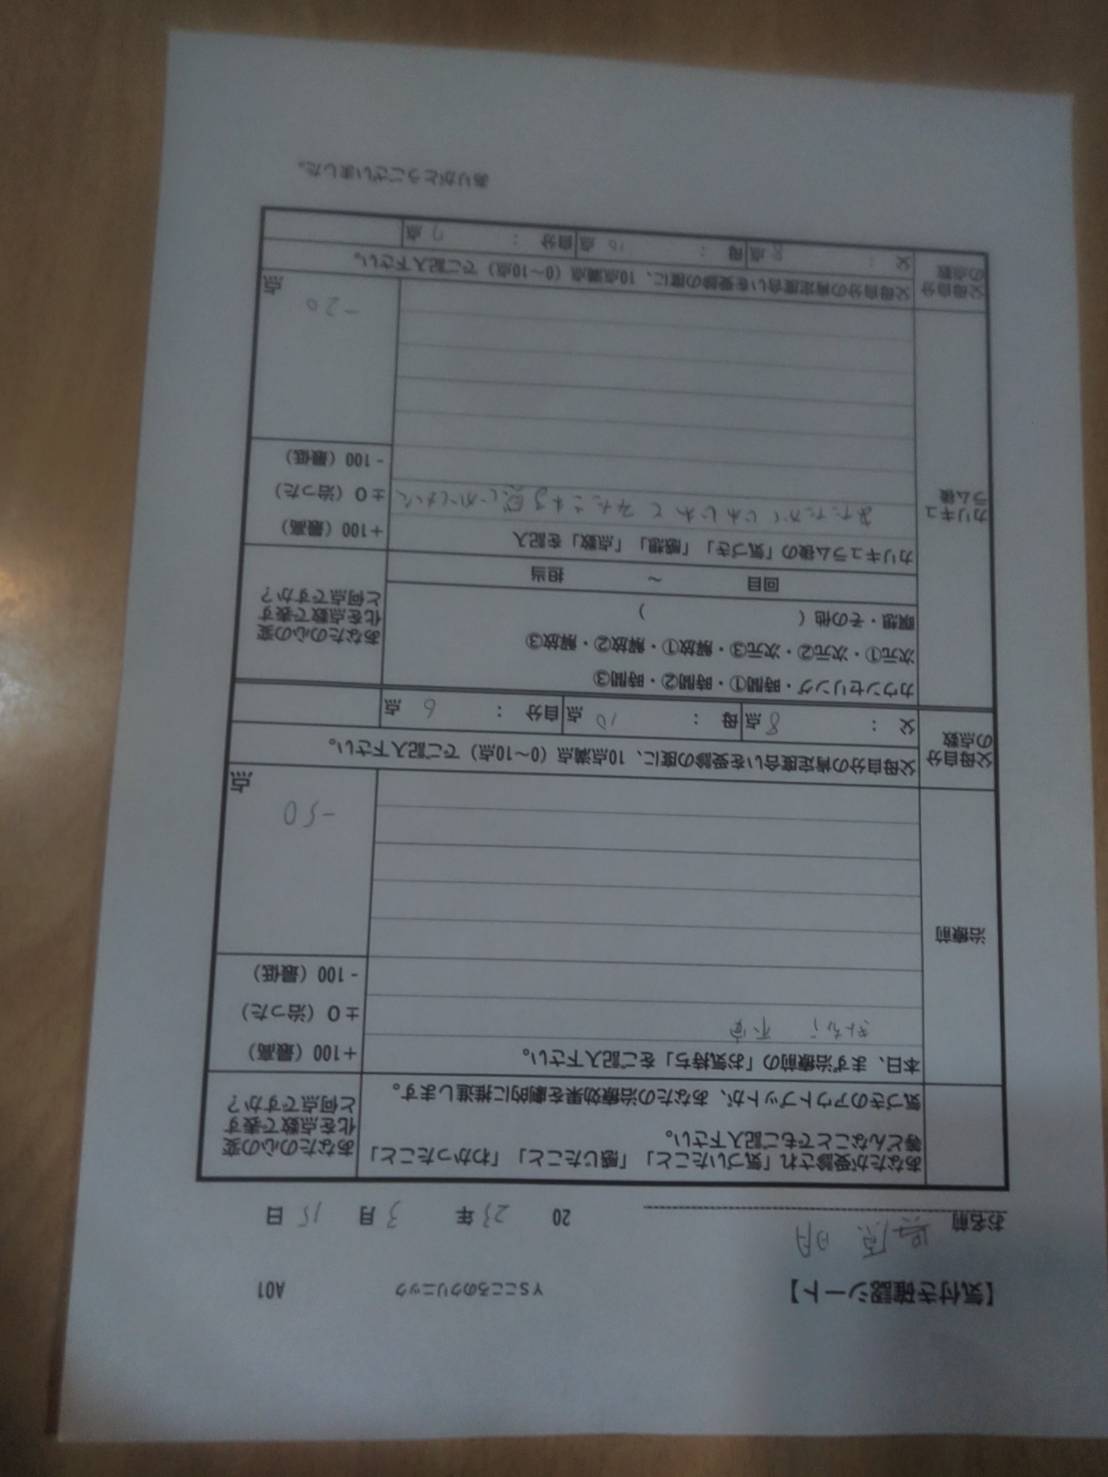 【気付き確認シート】 YSこころのクリニック A01
お名前 塩原 明 20 23年 3月 15日
あなたが受診され「気づいたこと」「感じたこと」「わかったこと」
等どんなことでもご記入下さい。
気づきのアウトプットが、あなたの治療効果を劇的に推進します。
あなたの心の変
化を点数で表す
と何点ですか?
治療前
本日、まず治療前の「お気持ち」をご記入下さい。
不安
+100(最高)
±0(治った)
-100(最低)
-50
点
父母自分
の点数
父母自分の肯定度合いを受診の度に、10点満点(0~10点)でご記入下さい。
父 : 8点 母 : 10点 自分 : 6点
カリキュ
ラム後
カウンセリング・時間①・時間②・時間③
次元①・次元②・次元③・解放①・解放②・解放③
瞑想・その他( )
回目 ~ 担当
あなたの心の変
化を点数で表す
と何点ですか?
カリキュラム後の「気づき」「感想」「点数」を記入
+100(最高)
±0(治った)
-100(最低)
-20
点
父母自分
の点数
父母自分の肯定度合いを受診の度に、10点満点(0~10点)でご記入下さい。
父 : 8点 母 : 10点 自分 : 7点
ありがとうございました。